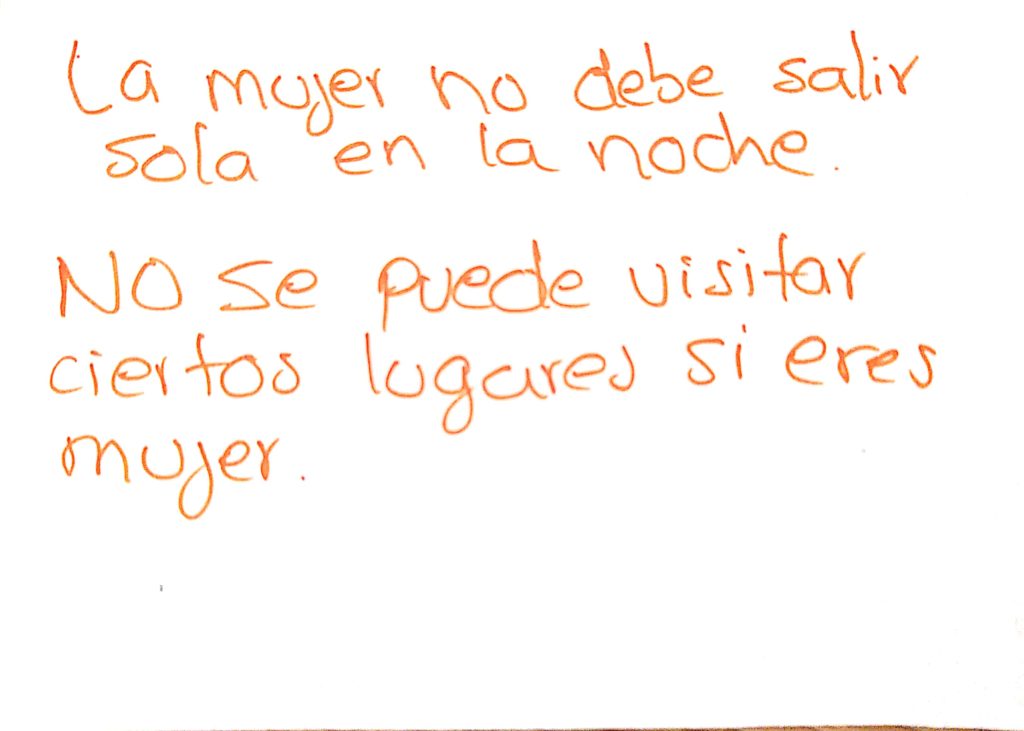 La mujer no debe salir
sola en la noche.
NO se puede visitar
ciertos lugares si eres
mujer.